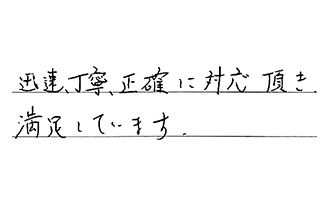 迅速、丁寧、正確に対応頂き
満足しています.